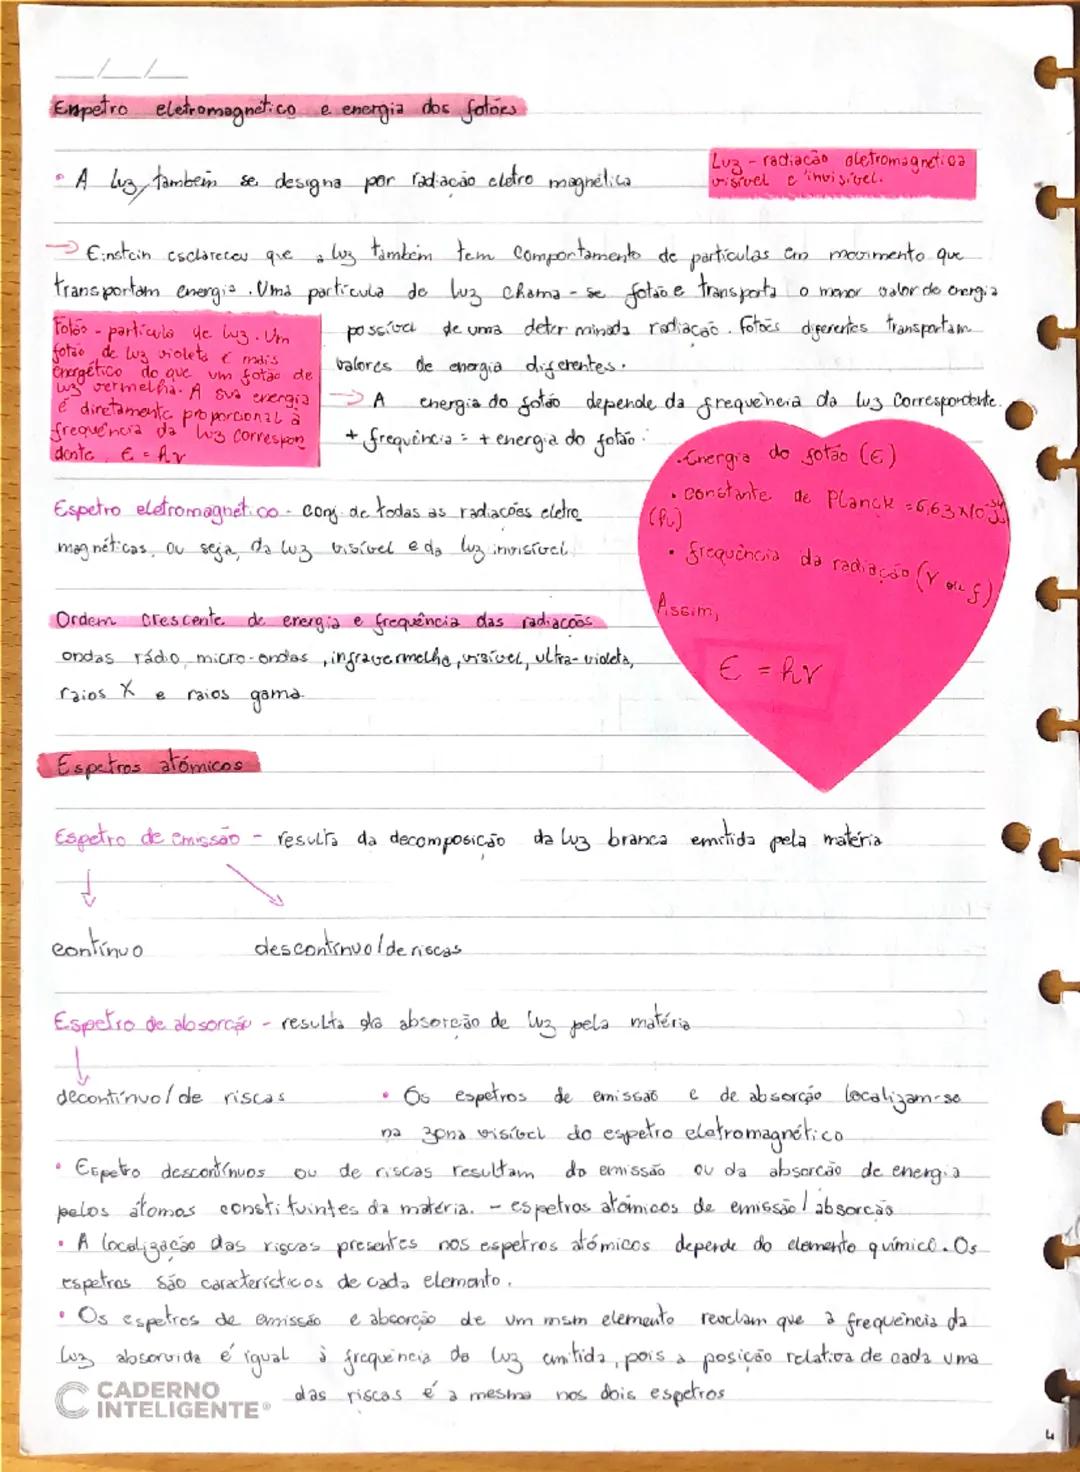 __/__/__
Espetro eletromagnético e energia dos fotões
• A luz, também se designa por radiação eletro magnética
Luz - radiação eletromagnética
visível e invisível.
→ Einstein esclareceu que a luz também tem comportamento de partículas em movimento que
transportam energia. Uma partícula de luz chama-se fotão e transporta o menor valor de energia
possível de uma determinada radiação. Fotões diferentes transportam
valores de energia diferentes.
Fotão - partícula de luz. Um
fotão de luz violeta é mais
energético do que um fotão de
luz vermelha. A sua energia
é diretamente proporcional à
frequência da luz correspon
dente. E = hν
→ A energia do fotão depende da frequência da luz correspondente.
+ frequência = + energia do fotão.
• Energia do fotão (E)
• constante de Planck = 6,63 x 10⁻³⁴ Js
(h)
• frequência da radiação (ν ou f)
Assim,
E = hν
Espetro eletromagnético - conj. de todas as radiações eletro
magnéticas, ou seja, da luz visível e da luz invisível.
Ordem crescente de energia e frequência das radiações
ondas rádio, micro-ondas, infravermelha, visível, ultra-violeta,
raios X e raios gama.
Espetros atómicos
Espetro de emissão - resulta da decomposição da luz branca emitida pela matéria
contínuo descontínuo/de riscas
Espetro de absorção - resulta da absorção de luz pela matéria
decontínuo/de riscas
• Os espetros de emissão e de absorção localizam-se
na zona visível do espetro eletromagnético
• Espetro descontínuos ou de riscas resultam da emissão ou da absorção de energia
pelos átomos constituintes da matéria. - espetros atómicos de emissão/absorção
• A localização das riscas presentes nos espetros atómicos depende do elemento químico. Os
espetros são característicos de cada elemento.
• Os espetros de emissão e absorção de um msm elemento revelam que a frequência da
luz absorvida é igual à frequência da luz emitida, pois a posição relativa de cada uma
das riscas é a mesma nos dois espetros
CADERNO
INTELIGENTE®
4